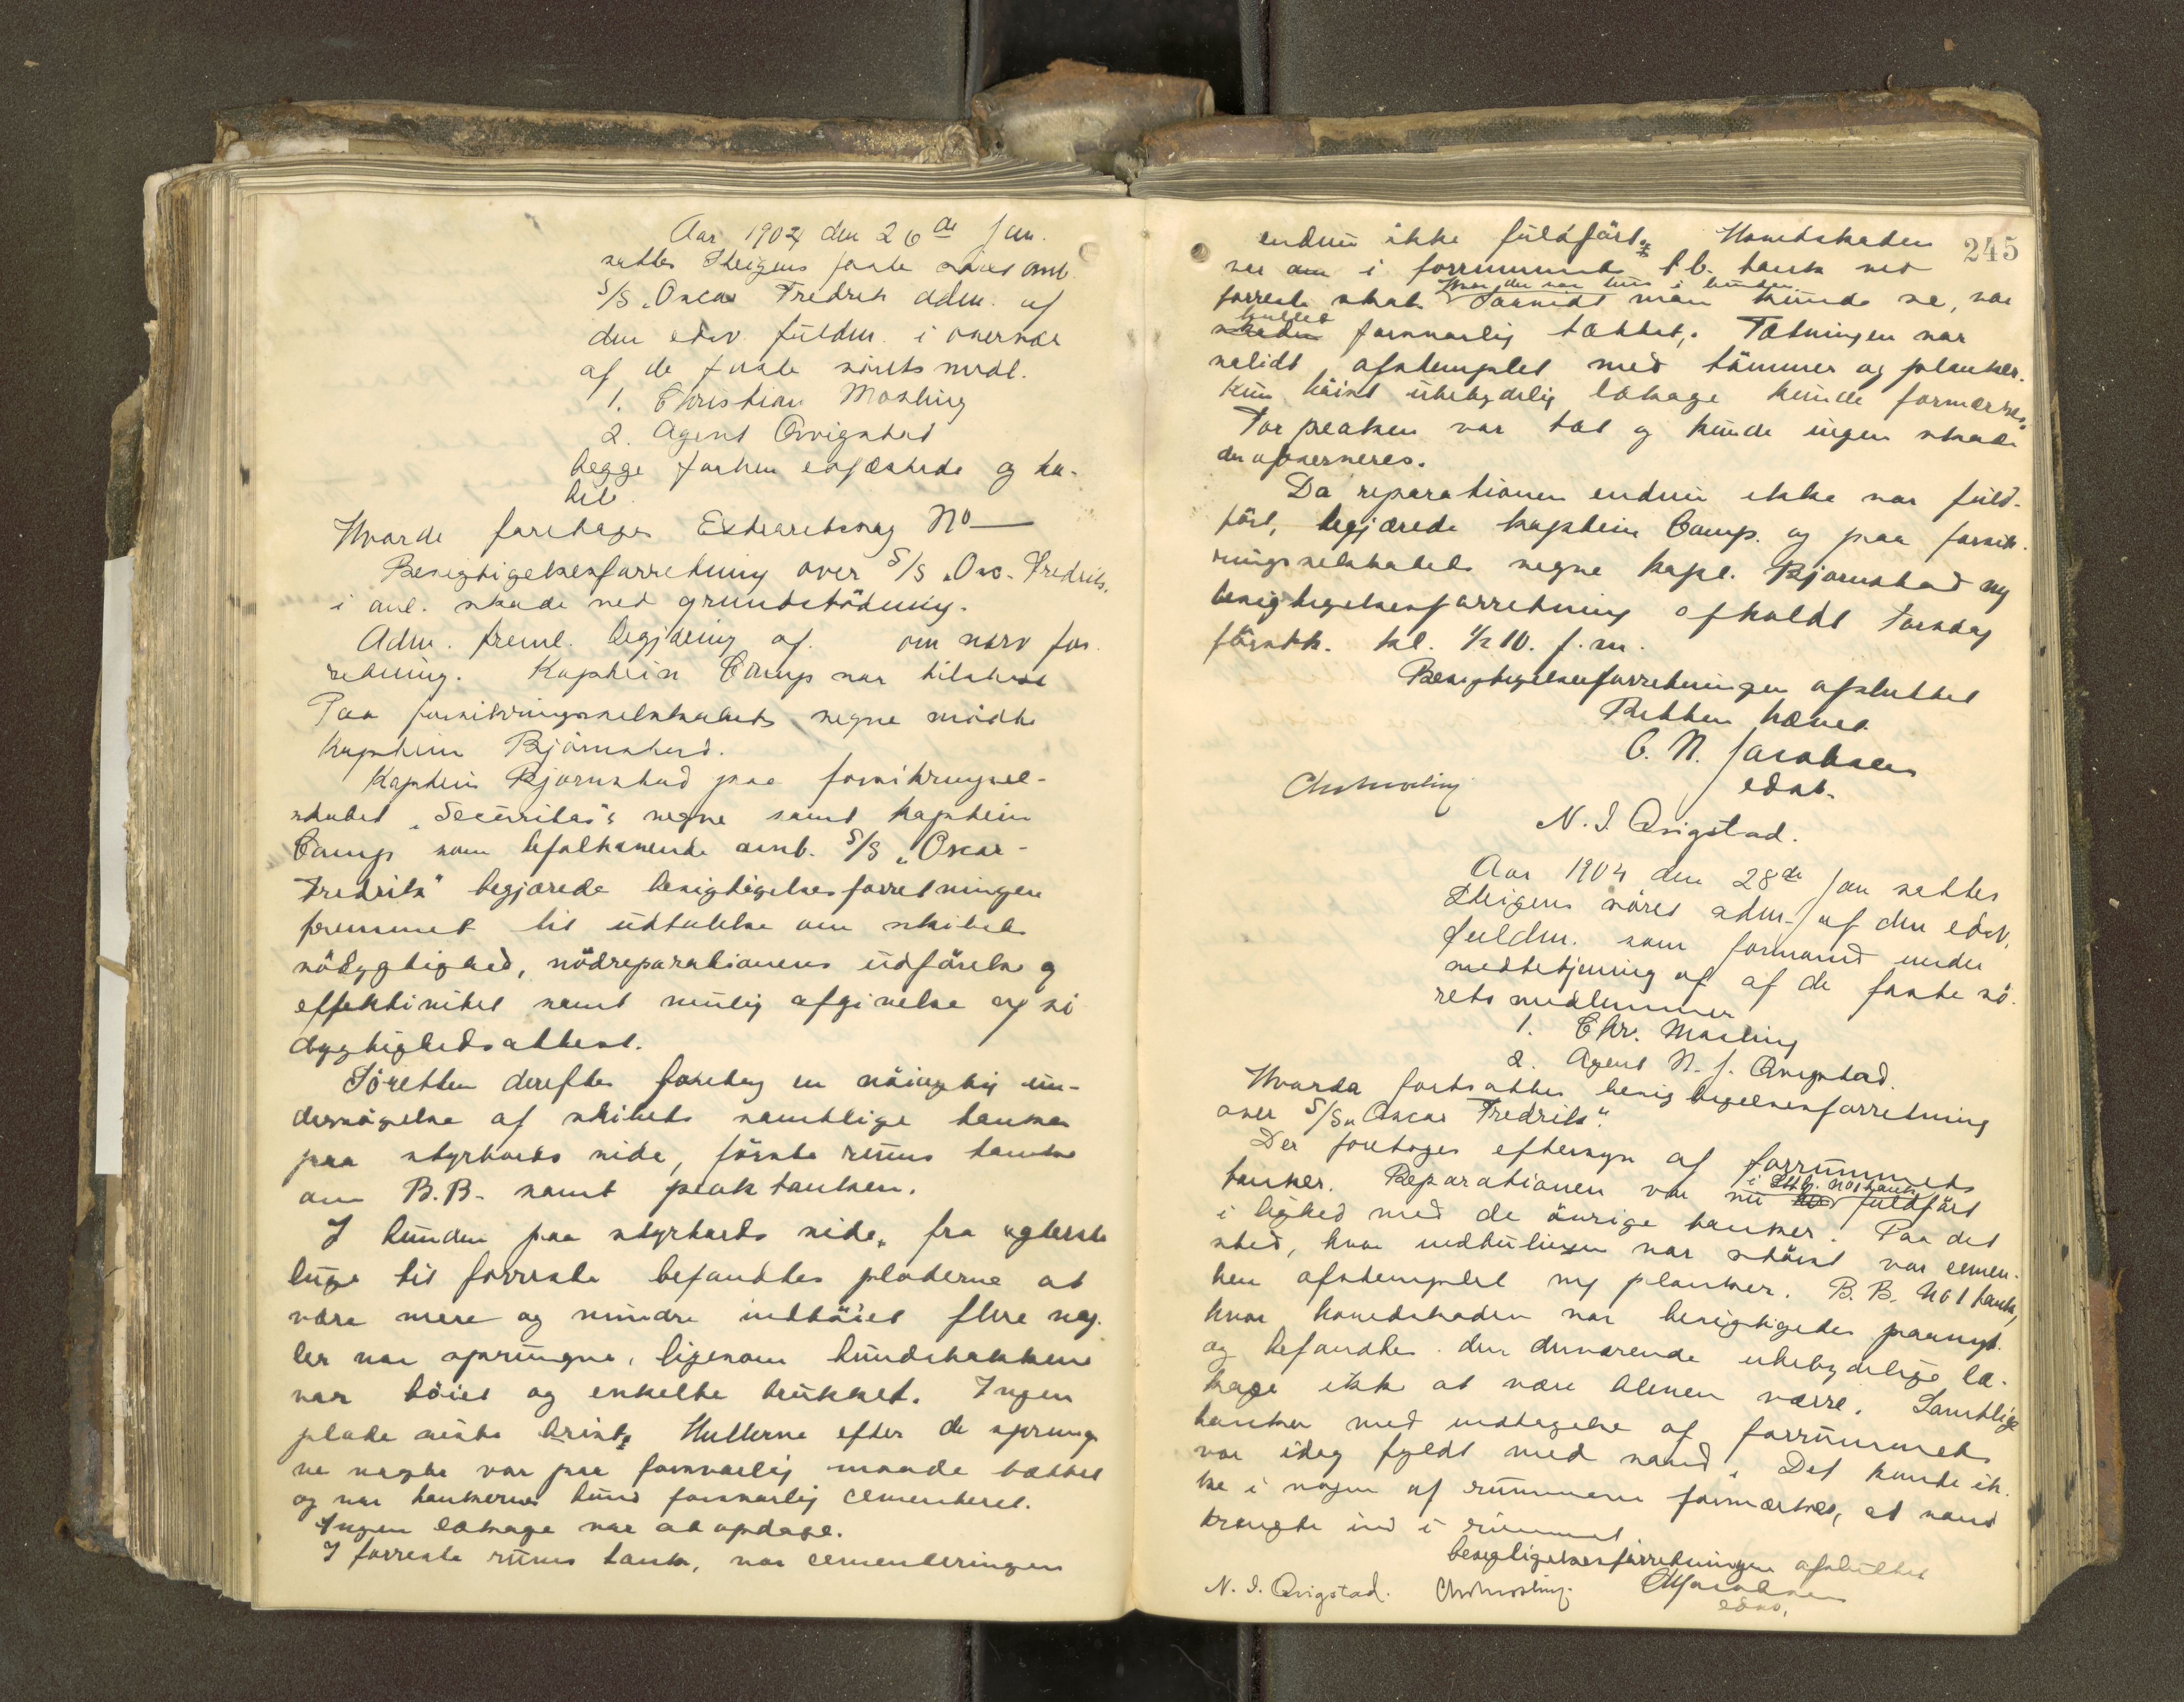 Aar 1904 den 26de Jan.
sattes Steigens faste søret omb.
S/S „Oscar Fredrik adm. af
den edsv. fuldm. i overvær
af de faste sörets medl.
1. Christian Mosling
2. Agent Qvigstad
begge forhen edfæstede og ha-
bile.
Hvorda foretoges Extraretssag No —
Besigtigelsesforretning over S/S „Osc. Fredrik„
i anl. skade ved grundstödning.
Adm. freml. begjæring af om nærv for-
retning. Kaptein Camp var tilstede
Paa forsikringsselskabets vegne mödte
Kaptein Björnstad.
Kaptein Bjornstad paa forsikringssel-
skabet „Securitas"s vegne samt kaptein
Camp som befalhavende omb. S/S „Oscar-
Fredrik" begjærede besigtigelsesforretningen
fremmet til udtalelse om skibets
södygtighed, nödreparationens udförelse og
effektivitet samt mulig afgivelse af sö
dygtighedsattest.
Söretten derefter foretog en nöiagtig un-
dersögelse af skibets samtlige tanker
paa styrbords side, förste rums tanke
om B.B. samt peak tanken.
I bunden paa styrbords side, fra agterste
luge til forreste befandtes pladerne at
være mere og mindre indböiet flere nag-
ler var sprungne, ligesom bundstokkene
var böiet og enkelte brukket. Ingen
plade viste brist. Hullerne efter de sprung-
ne nagler var paa forsvarlig maade tættet
og var tankernes bund forsvarlig cementeret.
Ingen lækage var at opdage.
I forreste rums tank, var cementeringen
245
endnu ikke fuldfört. Hovedskaden
var om i forrummet b.b. tank ved
Hvor der var hul i bunden
forreste skot. Saavidt man kunde se, var
hullet
skaden forsvarlig tættet. Tætningen var
solidt afstemplet med tömmer og planker.
Kun höist ubetydelig lækage kunde formærkes.
Forpeaken var tæt og kunde ingen skade
der observeres.
Da reparationen endnu ikke var fuld-
fört, begjærede kaptein Camp. og paa forsik-
ringsselskabets vegne kapt. Bjornstad ny
besigtigelsesforretning afholdt torsdag
förstk. kl. ½ 10. f.m.
Besigtigelsesforretningen afsluttet
Retten hævet
C. N. Jacobsen
edsv.
Chr Mosling
N. J. Qvigstad.
Aar 1904 den 28de Jan sattes
Steigens söret adm. af den edsv.
fuldm. som formand under
medbetjening af af de faste sö-
rets medlemmer
1. Chr. Mosling
2. Agent N. J. Qvigstad.
Hvorda fortsattes besigtigelsesforretning
over S/S „Oscar Fredrik".
Der foretoges eftersyn af forrummets
i Stb. No 1 tank
tanker. Reparationen var nu fuldfört
i lighed med de övrige tanker. Paa det
sted, hvor indbulingen var störst var cemen-
ten afstemplet mg planker. B.B. No 1 tank,
hvor hovedskaden var besigtigedes paanyt
og befandtes den duværende ubetydelige læ-
kage ikke at være bleven værre. Samtlige
tanker med undtagelse af forrummets
var idag fyldt med vand. Det kunde ik-
ke i nogen af rummene formærkes, at vand
trængte ind i rummet.
besigtigelsesforretningen afsluttet
N. J. Qvigstad. Chr Mosling. CNJacobsen
edsv.